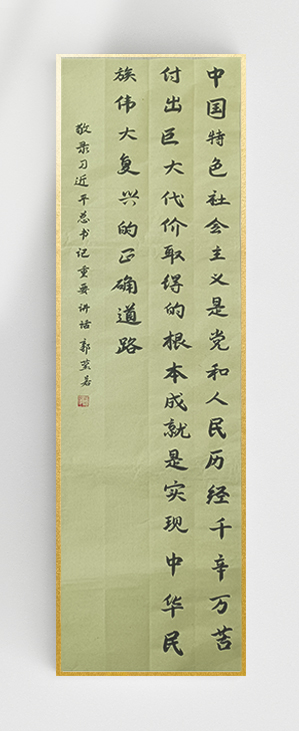 中国特色社会主义是党和人民历经千辛万苦
付出巨大代价取得的根本成就是实现中华民
族伟大复兴的正确道路
敬录习近平总书记重要讲话 郭